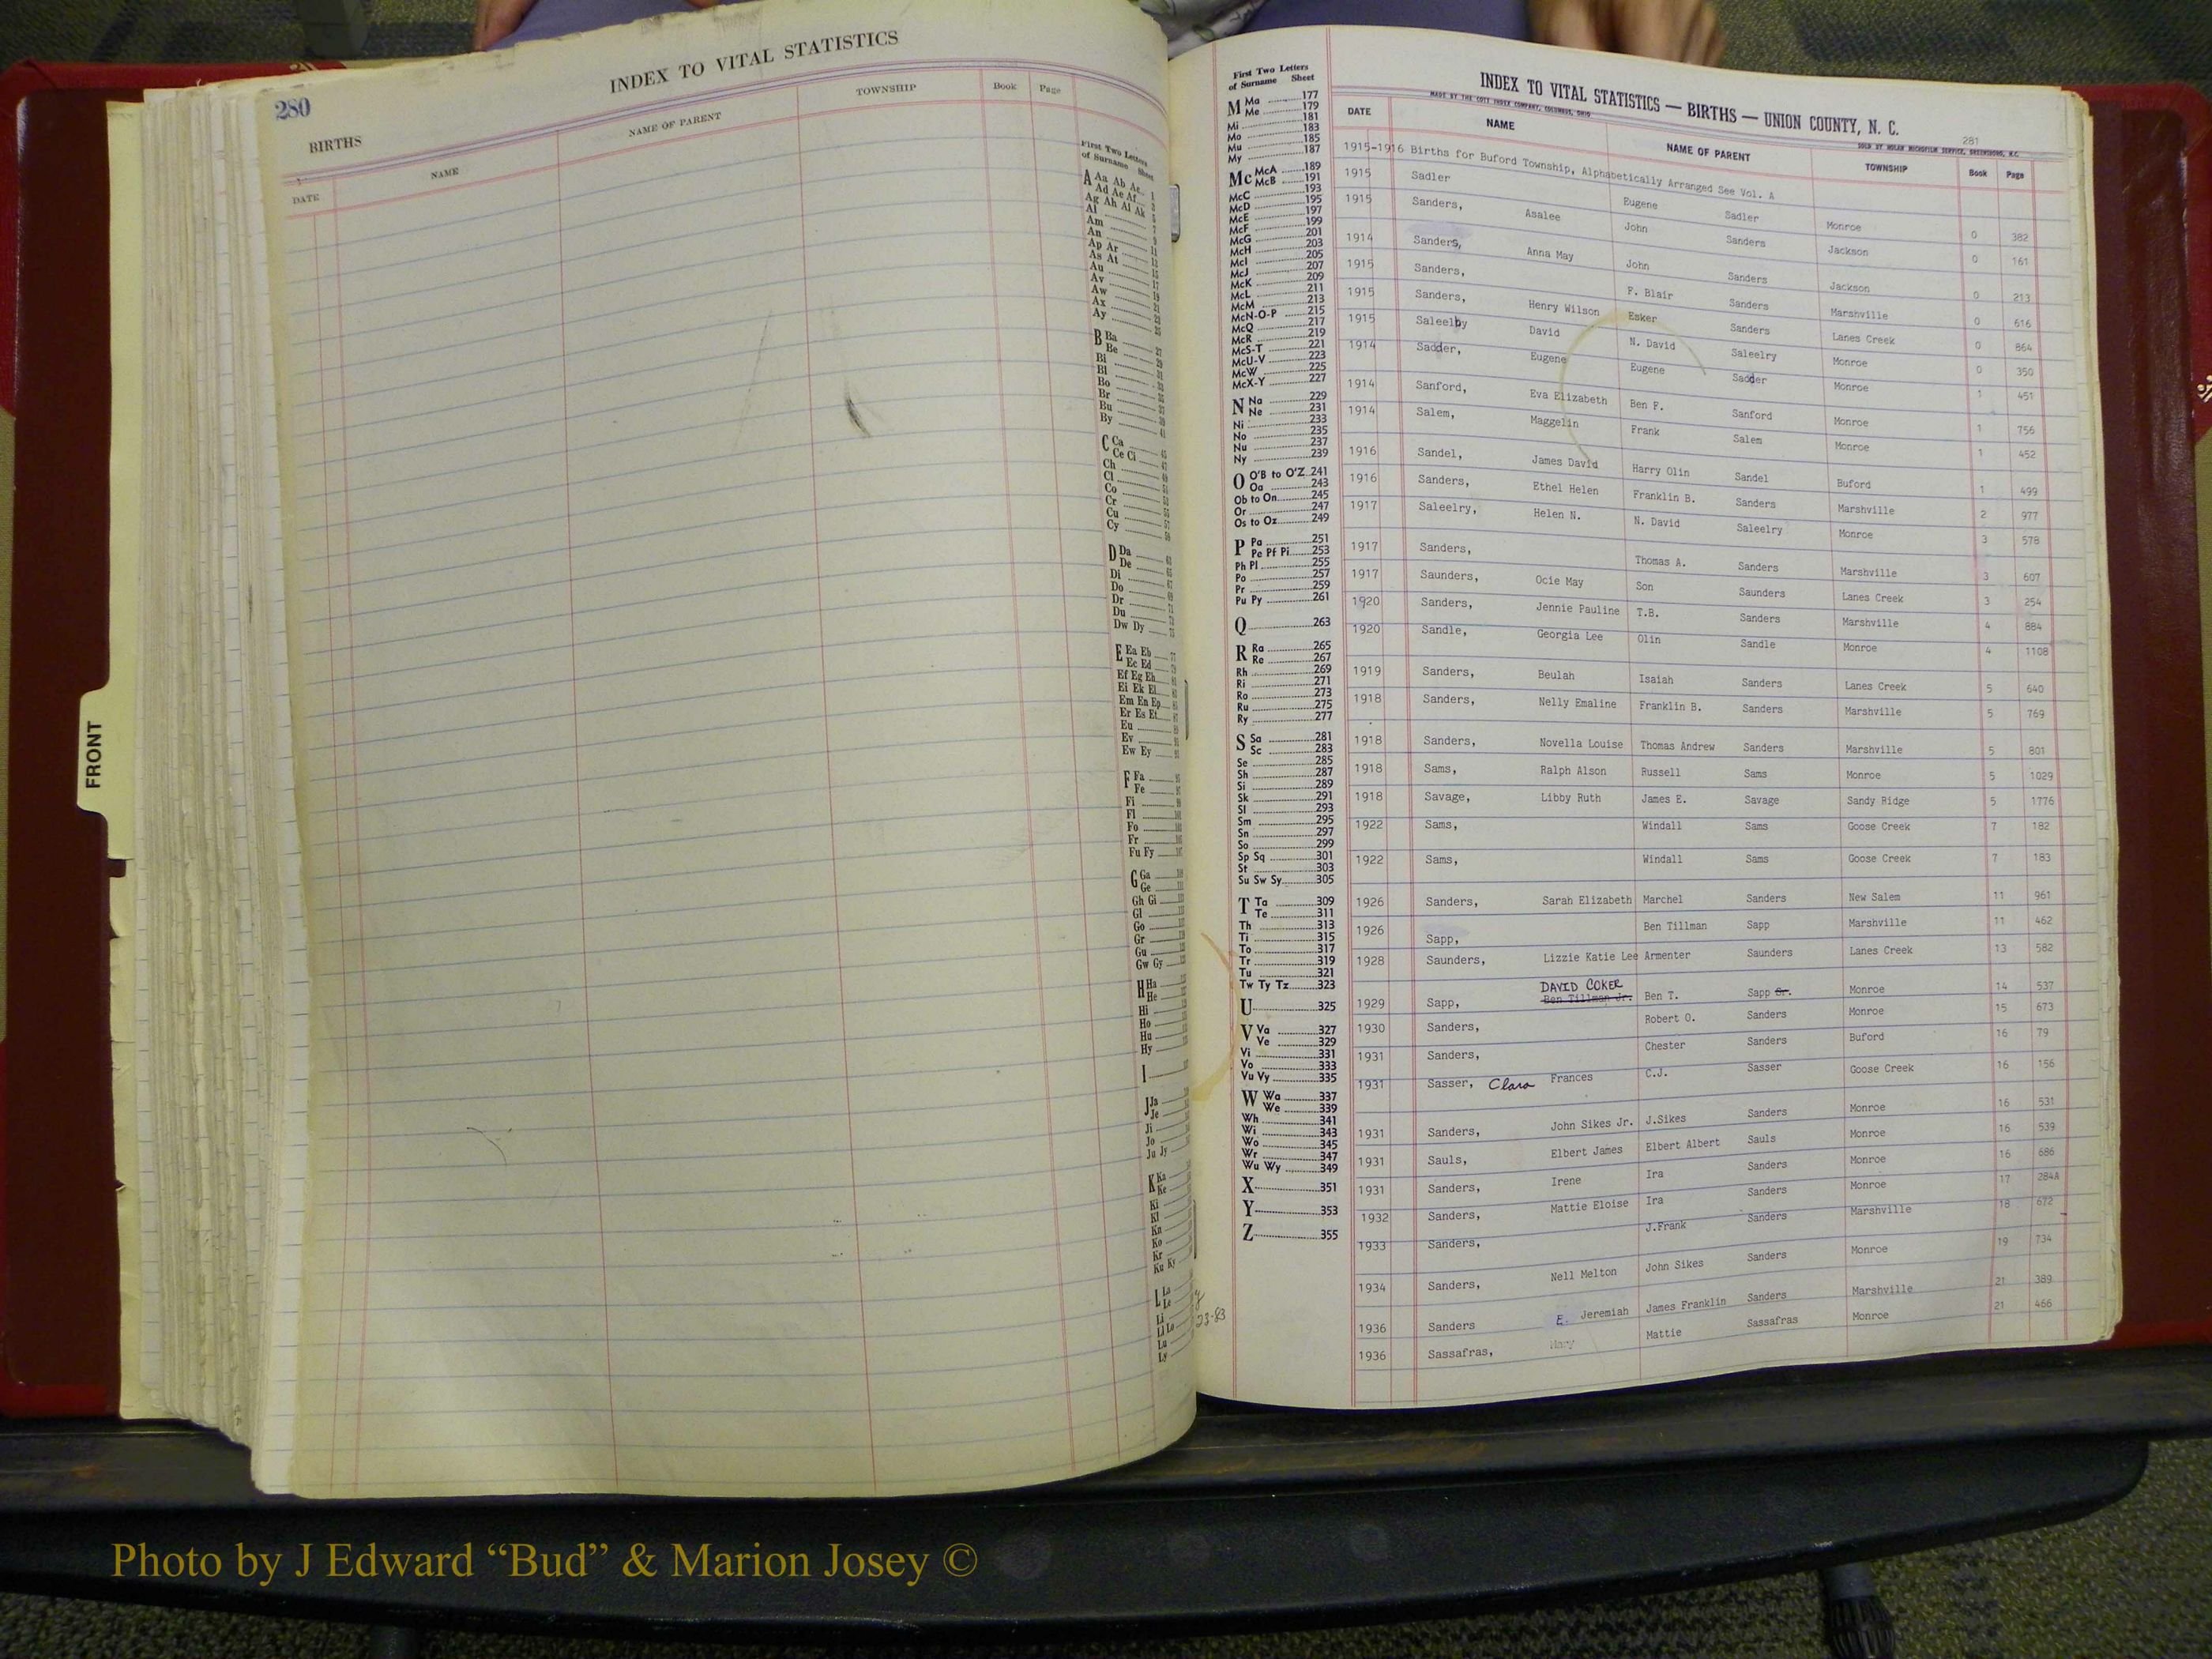 280
INDEX TO VITAL STATISTICS
BIRTHS
DATE NAME NAME OF PARENT TOWNSHIP Book Page
First Two Letters
of Surname Sheet
A Aa Ab Ac
Ad Ae Af
Ag Ah Ai Ak
Al
Am
An
Ap Ar
As At
Au
Av
Aw
Ax
Ay
B Ba
Be
Bi
Bl
Bo
Br
Bu
By
C Ca
Ce Ci
Ch
Cl
Co
Cr
Cu
Cy
D Da
De
Di
Do
Dr
Du
Dw Dy
E Ea Eb
Ec Ed
Ef Eg Eh
Ei Ek El
Em En Ep
Er Es Et
Eu
Ev
Ew Ey
F Fa
Fe
Fi
Fl
Fo
Fr
Fu Fy
G Ga
Ge
Gh Gi
Gl
Go
Gr
Gu
Gw Gy
H Ha
He
Hi
Ho
Hu
Hy
I
J Ja
Je
Ji
Jo
Ju Jy
K Ka
Ke
Ki
Kl
Kn
Ko
Kr
Ku Ky
L La
Le
Li
Ll Lo
Lu
Ly
23-83
FRONT
First Two Letters
of Surname Sheet
M Ma 177
Me 179
Mi 181
Mo 183
Mu 185
My 187
Mc McA 189
McB 191
McC 193
McD 195
McE 197
McF 199
McG 201
McH 203
McI 205
McJ 207
McK 209
McL 211
McM 213
McN-O-P 215
McQ 217
McR 219
McS-T 221
McU-V 223
McW 225
McX-Y 227
N Na 229
Ne 231
Ni 233
No 235
Nu 237
Ny 239
O O'B to O'Z 241
Oa 243
Ob to On 245
Or 247
Os to Oz 249
P Pa 251
Pe Pf Pi 253
Ph Pl 255
Po 257
Pr 259
Pu Py 261
Q 263
R Ra 265
Re 267
Rh 269
Ri 271
Ro 273
Ru 275
Ry 277
S Sa 281
Sc 283
Se 285
Sh 287
Si 289
Sk 291
Sl 293
Sm 295
Sn 297
So 299
Sp Sq 301
St 303
Su Sw Sy 305
T Ta 309
Te 311
Th 313
Ti 315
To 317
Tr 319
Tu 321
Tw Ty Tz 323
U 325
V Va 327
Ve 329
Vi 331
Vo 333
Vu Vy 335
W Wa 337
We 339
Wh 341
Wi 343
Wo 345
Wr 347
Wu Wy 349
X 351
Y 353
Z 355
INDEX TO VITAL STATISTICS — BIRTHS — UNION COUNTY, N. C.
MADE BY THE COTT INDEX COMPANY, COLUMBUS, OHIO
281
SOLD BY NOLAN MICROFILM SERVICE, GREENSBORO, N.C.
DATE NAME NAME OF PARENT TOWNSHIP Book Page
1915-1916 Births for Buford Township, Alphabetically Arranged See Vol. A
1915 Sadler Eugene Sadler Monroe 0 382
1915 Sanders, Asalee John Sanders Jackson 0 161
1914 Sanders, Anna May John Sanders Jackson 0 213
1915 Sanders, F. Blair Sanders Marshville 0 616
1915 Sanders, Henry Wilson Esker Sanders Lanes Creek 0 864
1915 Saleelby David N. David Saleelry Monroe 0 350
1914 Sadder, Eugene Eugene Sadder Monroe 1 451
1914 Sanford, Eva Elizabeth Ben F. Sanford Monroe 1 756
1914 Salem, Maggelin Frank Salem Monroe 1 452
1916 Sandel, James David Harry Olin Sandel Buford 1 499
1916 Sanders, Ethel Helen Franklin B. Sanders Marshville 2 977
1917 Saleelry, Helen N. N. David Saleelry Monroe 3 578
1917 Sanders, Thomas A. Sanders Marshville 3 607
1917 Saunders, Ocie May Son Saunders Lanes Creek 3 254
1920 Sanders, Jennie Pauline T.B. Sanders Marshville 4 884
1920 Sandle, Georgia Lee Olin Sandle Monroe 4 1108
1919 Sanders, Beulah Isaiah Sanders Lanes Creek 5 640
1918 Sanders, Nelly Emaline Franklin B. Sanders Marshville 5 769
1918 Sanders, Novella Louise Thomas Andrew Sanders Marshville 5 801
1918 Sams, Ralph Alson Russell Sams Monroe 5 1029
1918 Savage, Libby Ruth James E. Savage Sandy Ridge 5 1776
1922 Sams, Windall Sams Goose Creek 7 182
1922 Sams, Windall Sams Goose Creek 7 183
1926 Sanders, Sarah Elizabeth Marchel Sanders New Salem 11 961
1926 Sapp, Ben Tillman Sapp Marshville 11 462
1928 Saunders, Lizzie Katie Lee Armenter Saunders Lanes Creek 13 582
DAVID COKER
1929 Sapp, Ben Tillman Jr. Ben T. Sapp Sr. Monroe 14 537
1930 Sanders, Robert O. Sanders Monroe 15 673
1931 Sanders, Chester Sanders Buford 16 79
1931 Sasser, Clara Frances C.J. Sasser Goose Creek 16 156
1931 Sanders, John Sikes Jr. J.Sikes Sanders Monroe 16 531
1931 Sauls, Elbert James Elbert Albert Sauls Monroe 16 539
1931 Sanders, Irene Ira Sanders Monroe 16 686
1932 Sanders, Mattie Eloise Ira Sanders Monroe 17 284A
1933 Sanders, J.Frank Sanders Marshville 18 672
1934 Sanders, Nell Melton John Sikes Sanders Monroe 19 734
1936 Sanders E. Jeremiah James Franklin Sanders Marshville 21 389
1936 Sassafras, Mary Mattie Sassafras Monroe 21 466
Photo by J Edward “Bud” & Marion Josey ©